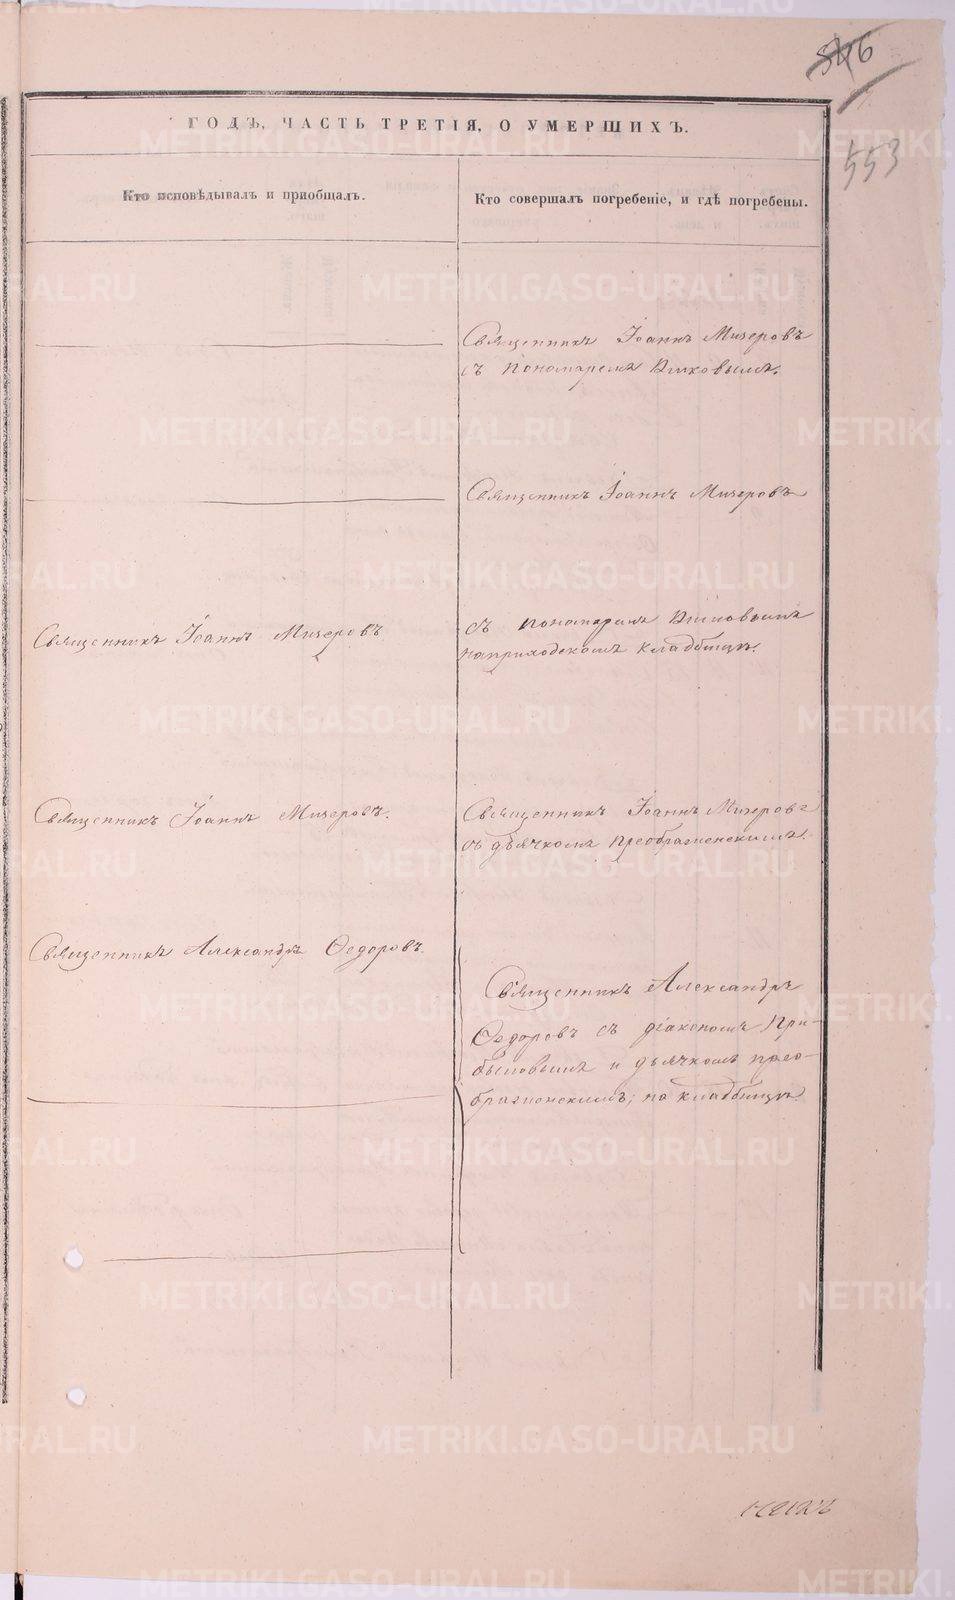 546
553
ГОДЪ, ЧАСТЬ ТРЕТІЯ, О УМЕРШИХЪ.
Кто исповѣдывалъ и пріобщалъ.
Кто совершалъ погребеніе, и гдѣ погребены.
Священникъ Іоаннъ Мизеровъ
съ пономаремъ
Священникъ Іоаннъ Мизеровъ
Священникъ Іоаннъ Мизеровъ
съ пономаремъ
на приходскомъ кладбищѣ.
Священникъ Іоаннъ Мизеровъ.
Священникъ Іоаннъ Мизеровъ
съ дьячкомъ Преображенскимъ.
Священникъ Александръ Ѳедоровъ.
Священникъ Александръ
Ѳедоровъ съ діакономъ При-
быловымъ и дьячкомъ Прео-
браженскимъ; на кладбищѣ.
METRIKI.GASO-URAL.RU